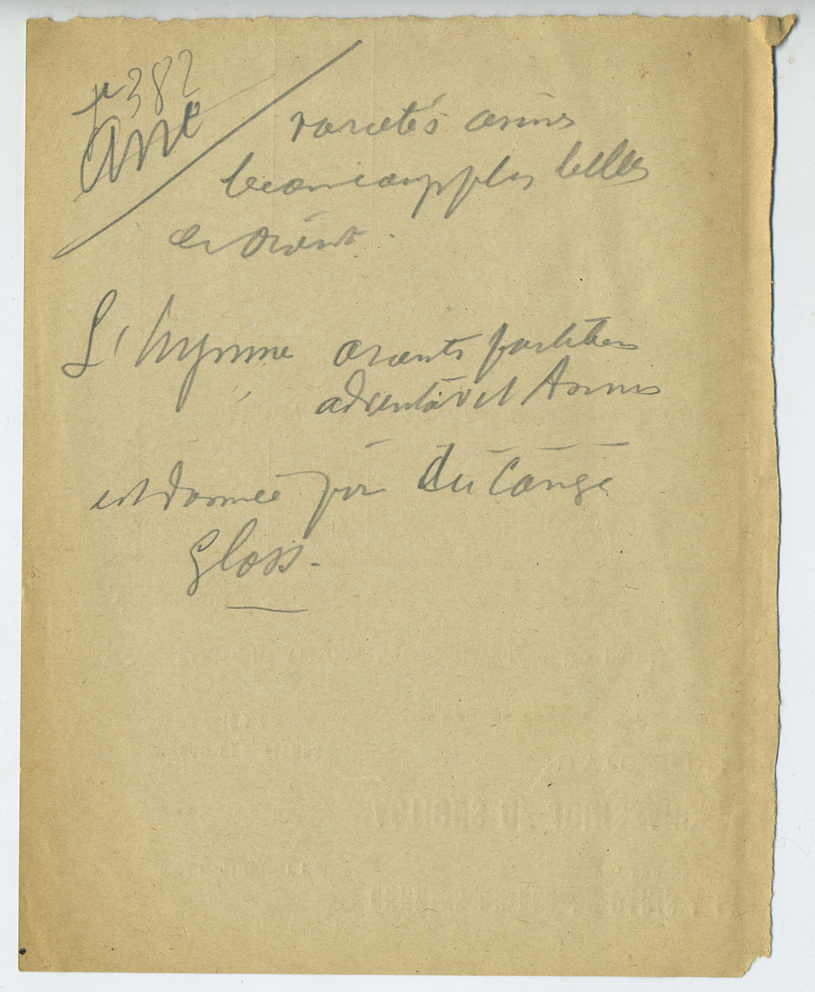 p 382
Ane
variétés asines
beaucoup plus belles
en Orient.
L'hymne orientis partibus
adventavit Asinus
est donnée par Du Cange
Gloss.